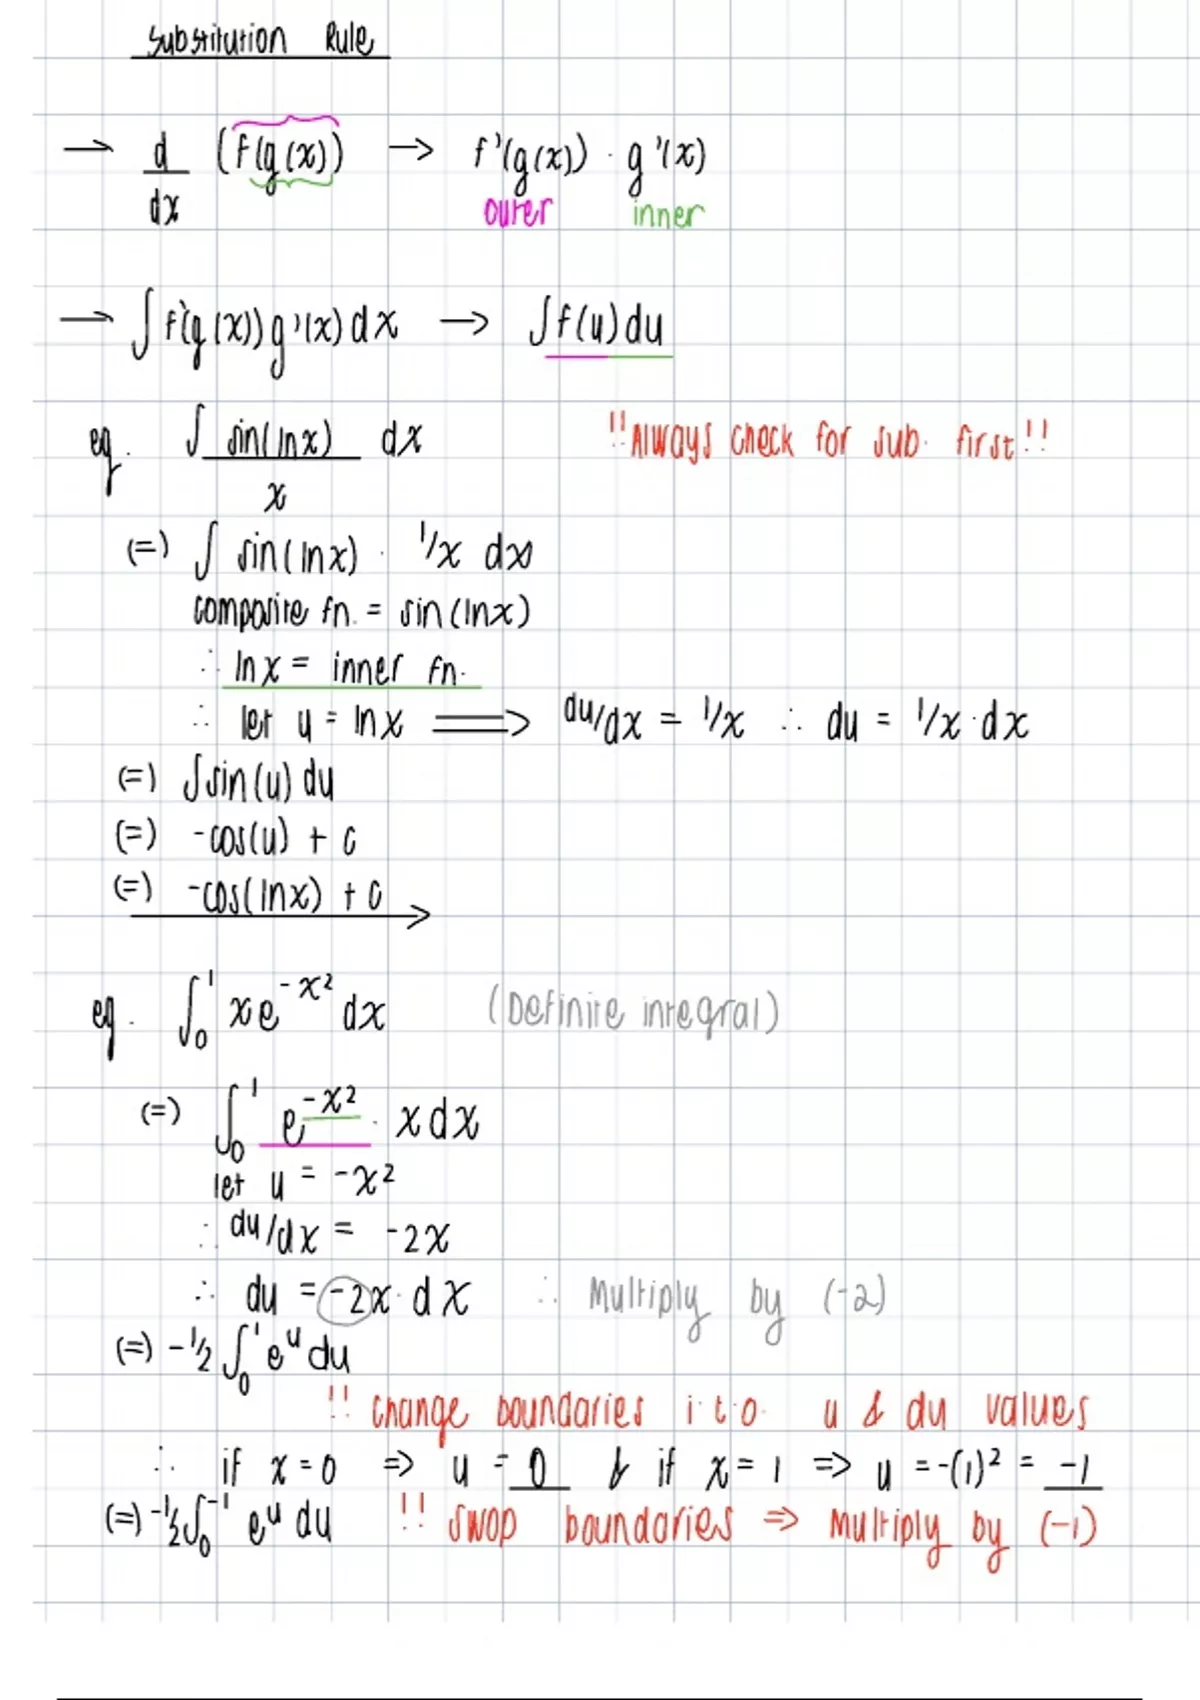 Substitution Rule
→ d/dx (f(g(x)) → f'(g(x)) · g'(x)
outer inner
→ ∫ f'(g(x)) g'(x) dx → ∫ f(u) du
eg. ∫ sin(lnx)/x dx !! Always check for sub. first !!
(=) ∫ sin(lnx) · 1/x dx
composite fn. = sin(lnx)
∴ lnx = inner fn.
∴ let u = lnx ⟹ du/dx = 1/x ∴ du = 1/x · dx
(=) ∫ sin(u) du
(=) -cos(u) + c
(=) -cos(lnx) + c
eg. ∫₀¹ xe^-x² dx (Definite integral)
(=) ∫₀¹ e^-x² · x dx
let u = -x²
∴ du/dx = -2x
∴ du = -2x · dx ∴ Multiply by (-2)
(=) -1/2 ∫₀¹ e^u du
!! change boundaries i.t.o. u & du values
∴ if x = 0 ⇒ u = 0 & if x = 1 ⇒ u = -(1)² = -1
(=) -1/2 ∫₀⁻¹ e^u du !! swap boundaries ⇒ Multiply by (-1)